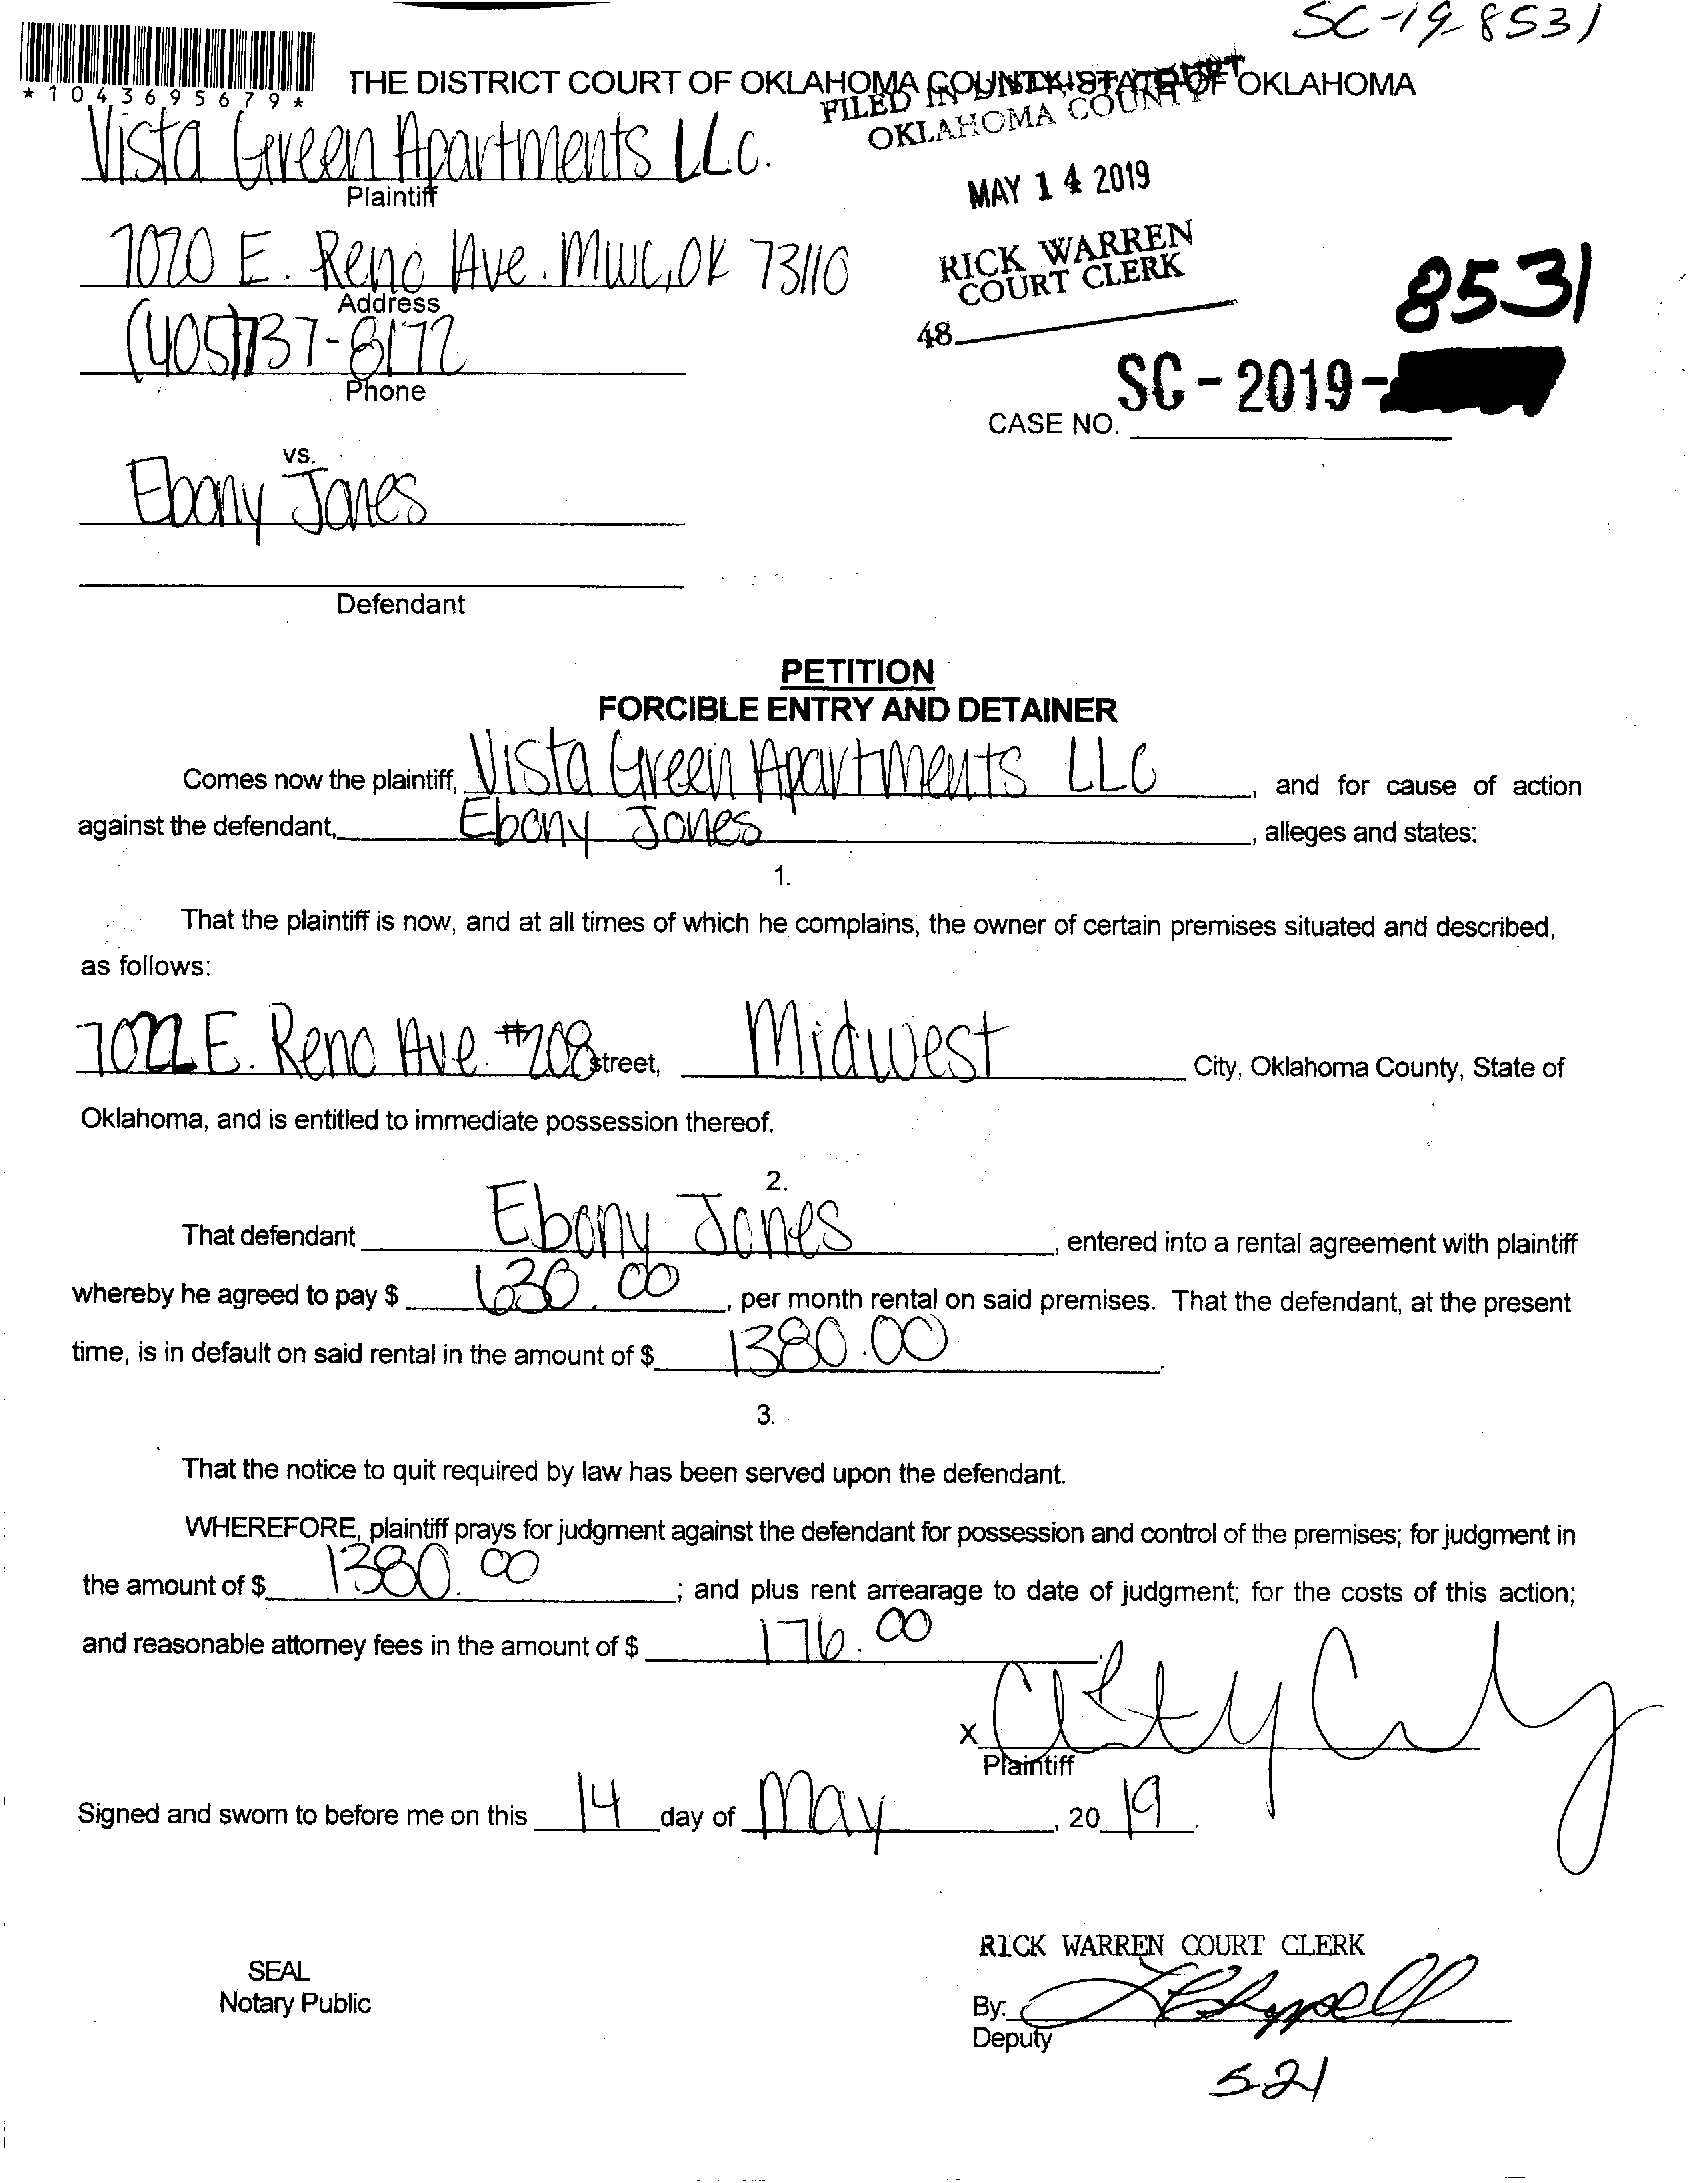 SC-19-8531
*1043695679*
THE DISTRICT COURT OF OKLAHOMA COUNTY, STATE OF OKLAHOMA
FILED IN DISTRICT COURT
OKLAHOMA COUNTY
Vista Green Apartments LLC.
Plaintiff
MAY 14 2019
7020 E. Reno Ave. MWC, OK 73110
Address
RICK WARREN
COURT CLERK
(405)737-8172
Phone
48
8531
SC-2019-
CASE NO.
vs.
Ebony Jones
Defendant
PETITION
FORCIBLE ENTRY AND DETAINER
Comes now the plaintiff, Vista Green Apartments LLC, and for cause of action
against the defendant, Ebony Jones, alleges and states:
1.
That the plaintiff is now, and at all times of which he complains, the owner of certain premises situated and described,
as follows:
7022 E. Reno Ave. #208 street, Midwest City, Oklahoma County, State of
Oklahoma, and is entitled to immediate possession thereof.
2.
That defendant Ebony Jones, entered into a rental agreement with plaintiff
whereby he agreed to pay $ 630.00, per month rental on said premises. That the defendant, at the present
time, is in default on said rental in the amount of $ 1380.00.
3.
That the notice to quit required by law has been served upon the defendant.
WHEREFORE, plaintiff prays for judgment against the defendant for possession and control of the premises; for judgment in
the amount of $ 1380.00; and plus rent arrearage to date of judgment; for the costs of this action;
and reasonable attorney fees in the amount of $ 176.00.
X
Plaintiff
Signed and sworn to before me on this 14 day of May, 20 19.
RICK WARREN COURT CLERK
SEAL
Notary Public
By:
Deputy
521